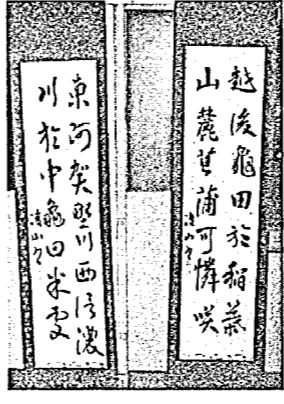 越後亀田於稲葉
山麓菖蒲可憐咲
東阿賀野川西信濃
川於中亀田米處